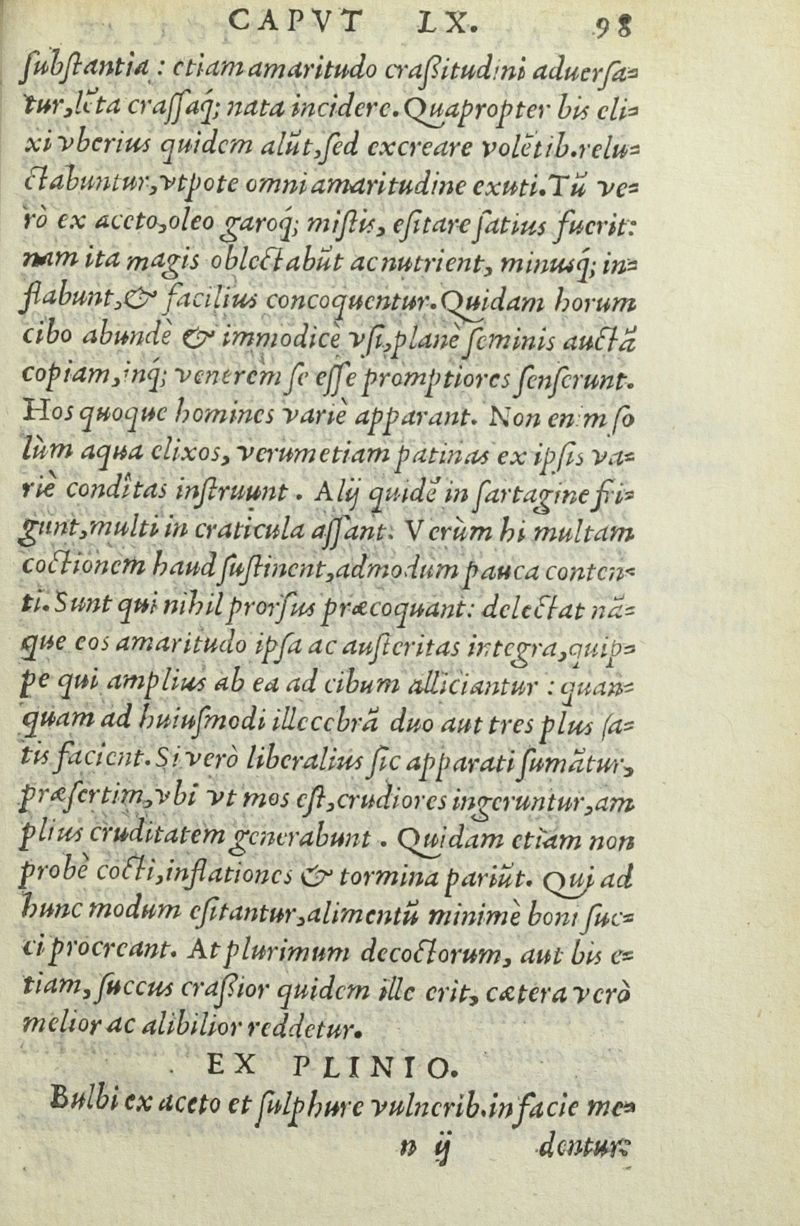 CAPVT LX. 98
ſubſtantia : etiam amaritudo craßitudini aduerſa⸗
tur, lēta craſſaq́; nata incidere. Quapropter bis eli⸗
xi vberius quidem alūt, ſed excreare volētib. relu⸗
ctabuntur, vtpote omni amaritudine exuti. Tū ve⸗
rò ex aceto, oleo garoq́; miſtis, eſitare ſatius fuerit:
nam ita magis oblectabūt ac nutrient, minusq́; in⸗
flabunt, & facilius concoquentur. Quidam horum
cibo abundè & immodicè vſi, planè ſeminis auctā
copiam, inq́; venerem ſe eſſe promptiores ſenſerunt.
Hos quoque homines variè apparant. Non enim ſo
lùm aqua elixos, verum etiam patinas ex ipſis va⸗
riè condîtas inſtruunt . Alij quidē in ſartagine fri⸗
gunt, multi in craticula aſſant. Verùm hi multam
coctionem haud ſuſtinent, admodum pauca conten⸗
ti. Sunt qui nihil prorſus præcoquant: delectat nā⸗
que eos amaritudo ipſa ac auſteritas integra, quip⸗
pe qui amplius ab ea ad cibum alliciantur : quan⸗
quam ad huiuſmodi illecebrā duo aut tres plus ſa⸗
tis facient. Si verò liberalius ſic apparati ſumātur,
præſertim, vbi vt mos eſt, crudiores ingeruntur, am
plius cruditatem generabunt . Quidam etiam non
probè cocti, inflationes & tormina pariūt. Qui ad
hunc modum eſitantur, alimentū minimè boni ſuc⸗
ci procreant. At plurimum decoctorum, aut bis e⸗
tiam, ſuccus craßior quidem ille erit, cætera verò
melior ac alibilior reddetur.
EX PLINIO.
Bulbi ex aceto et ſulphure vulnerib. in facie me⸗
n ij dentur: